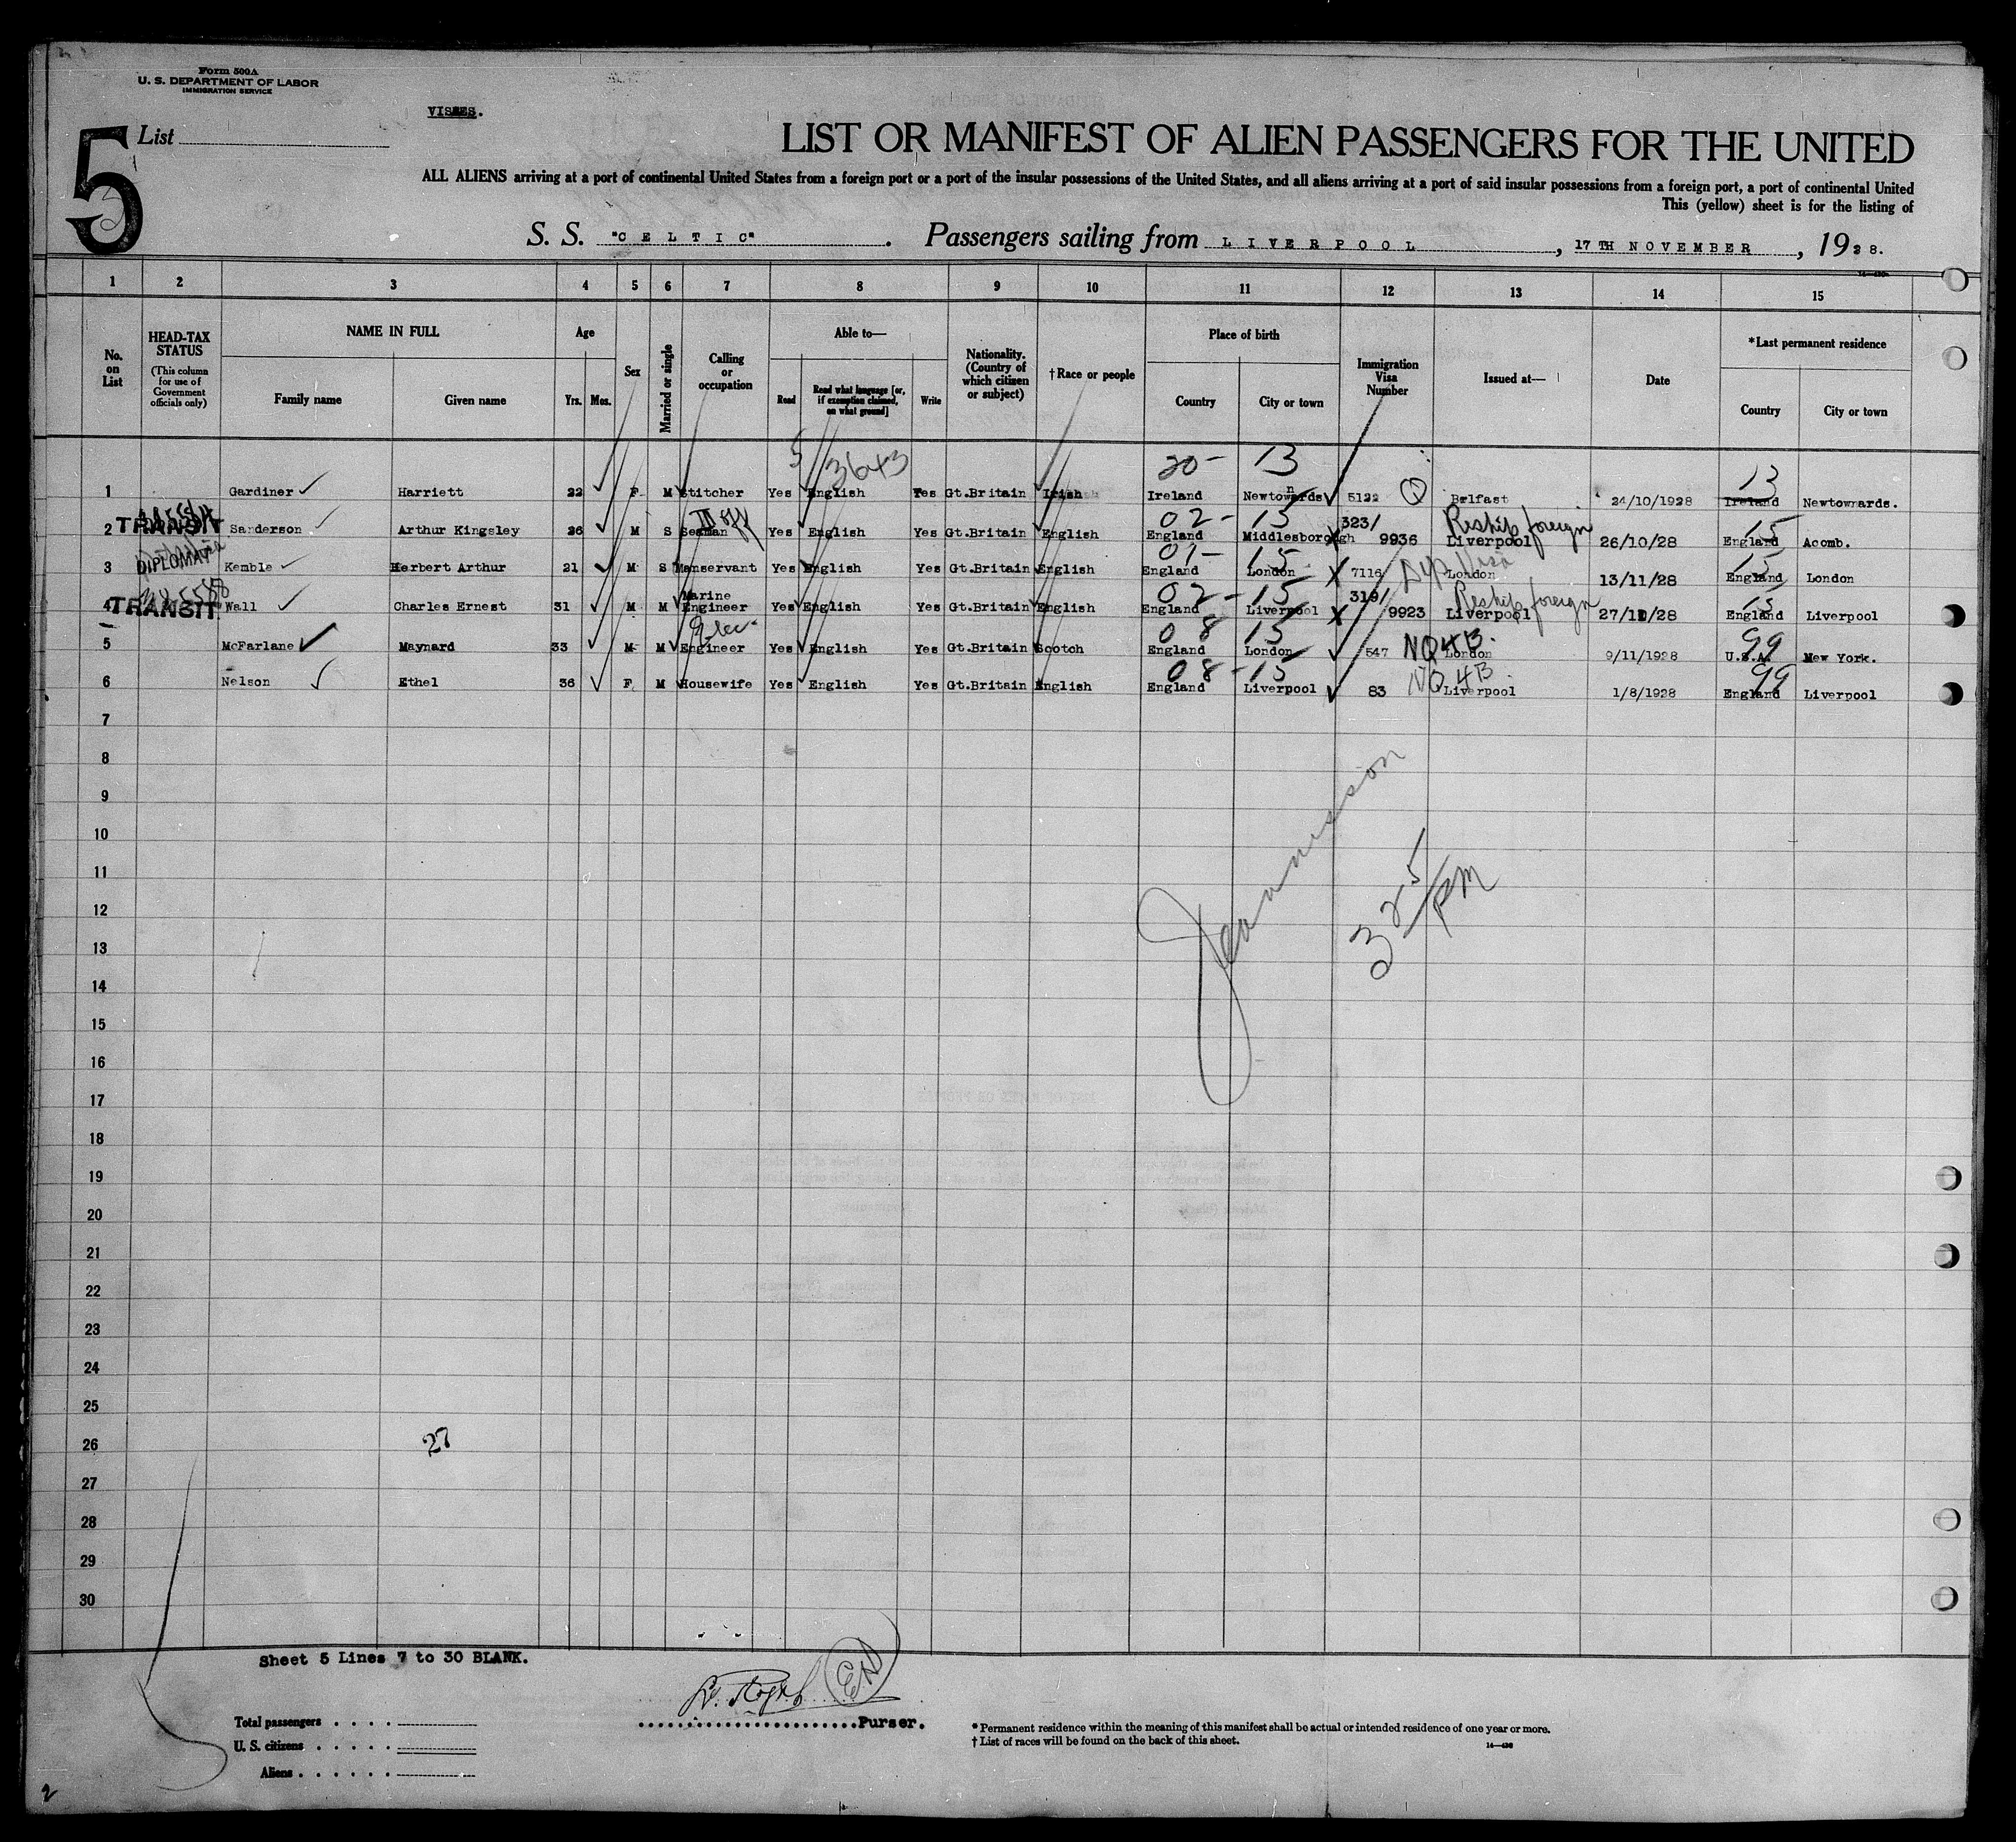 Form 500A
U. S. DEPARTMENT OF LABOR
IMMIGRATION SERVICE
VISAS.
5 List
LIST OR MANIFEST OF ALIEN PASSENGERS FOR THE UNITED
ALL ALIENS arriving at a port of continental United States from a foreign port or a port of the insular possessions of the United States, and all aliens arriving at a port of said insular possessions from a foreign port, a port of continental United
This (yellow) sheet is for the listing of
S. S. "CELTIC" . Passengers sailing from LIVERPOOL , 17TH NOVEMBER , 1928.
1 2 3 4 5 6 7 8 9 10 11 12 13 14 15
No. on List
HEAD-TAX STATUS (This column for use of Government officials only)
NAME IN FULL
Family name Given name
Age
Yrs. Mos.
Sex
Married or single
Calling or occupation
Able to—
Read Read what language [or, if exemption claimed, on what ground] Write
Nationality. (Country of which citizen or subject)
†Race or people
Place of birth
Country City or town
Immigration Visa Number
Issued at—
Date
*Last permanent residence
Country City or town
3643 20- 13 13
1 Gardiner Harriett 22 F M Stitcher Yes English Yes Gt.Britain Irish Ireland Newtownards 5122 Q Belfast 24/10/1928 Ireland Newtownards.
02- 15 3231 Reship foreign 15
2 TRANSIT Sanderson Arthur Kingsley 26 M S Seaman Yes English Yes Gt.Britain English England Middlesborough 9936 Liverpool 26/10/28 England Acomb.
01- 15 Dip Visa 15
3 DIPLOMAT Kemble Herbert Arthur 21 M S Manservant Yes English Yes Gt.Britain English England London 7116 London 13/11/28 England London
02- 15 3191 Reship foreign 15
4 TRANSIT Wall Charles Ernest 31 M M Marine Engineer Yes English Yes Gt.Britain English England Liverpool 9923 Liverpool 27/10/28 England Liverpool
Elec. 08 15 NQ4B. 99
5 McFarlane Maynard 33 M M Engineer Yes English Yes Gt.Britain Scotch England London 547 London 9/11/1928 U.S.A. New York.
08-15 NQ4B 99
6 Nelson Ethel 36 F M Housewife Yes English Yes Gt.Britain English England Liverpool 83 Liverpool 1/8/1928 England Liverpool
7
8
9
10
11
12
13
14
15
16
17
18
19
20
21
22
23
24
25
26
27
28
29
30
325 PM
27
Sheet 5 Lines 7 to 30 BLANK.
Purser.
Total passengers
U. S. citizens
Aliens
* Permanent residence within the meaning of this manifest shall be actual or intended residence of one year or more.
† List of races will be found on the back of this sheet.
2